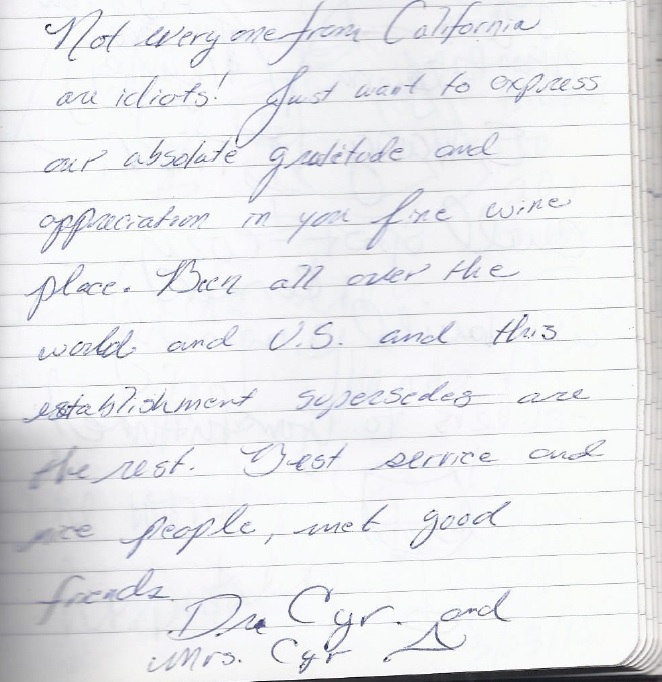 Not everyone from California
are idiots! Just want to express
our absolute gratitude and
appreciation in you fine wine
place. Been all over the
world and U.S. and this
establishment supersedes are
the rest. Best service and
nice people, met good
friends.
Dr. Cyr. and
Mrs. Cyr